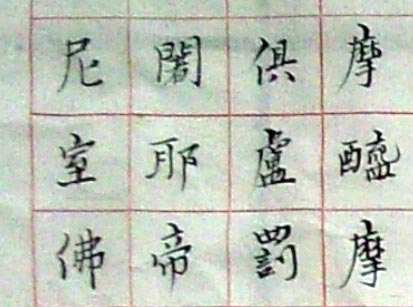 摩醯摩
俱盧罰
闍耶帝
尼室佛